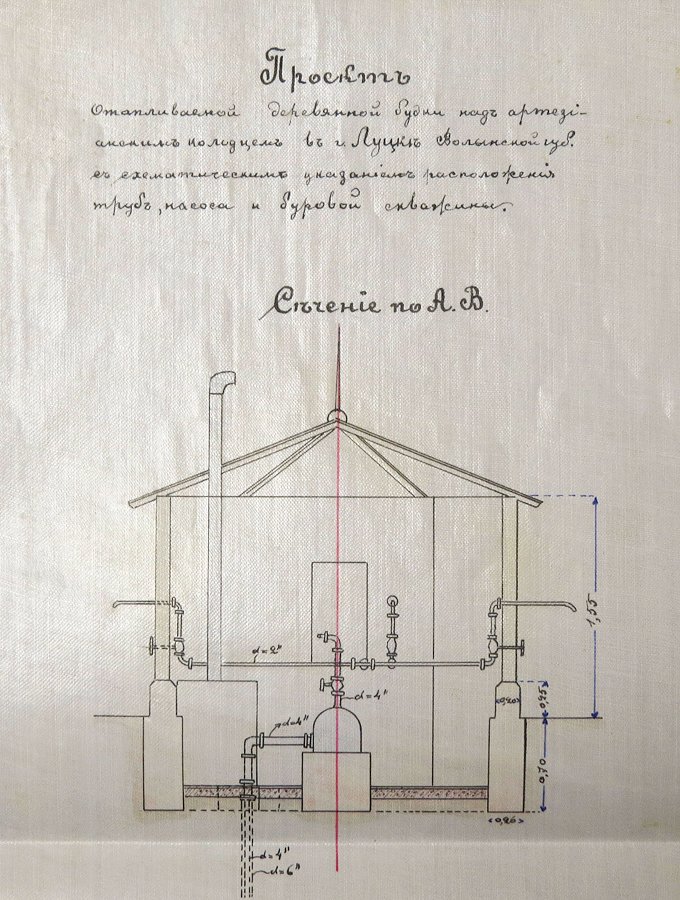 Проектъ
Отапливаемой деревянной будки надъ артезі-
анскимъ колодцемъ въ г. Луцкѣ Волынской губ.
съ схематическимъ указаніемъ расположенія
трубъ, насоса и буровой скважины.
Сѣченіе по А. В.
1,55
d=2"
d=4"
d=4"
0,25
<0,20>
0,70
<0,26>
d=4"
d=6"